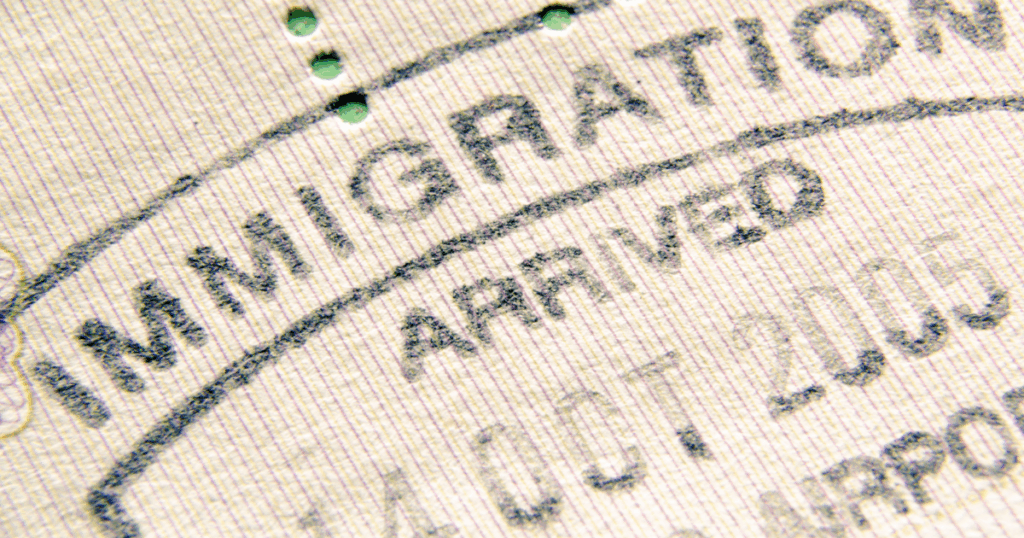 IMMIGRATION
ARRIVED
14 OCT 2005
AIRPOR